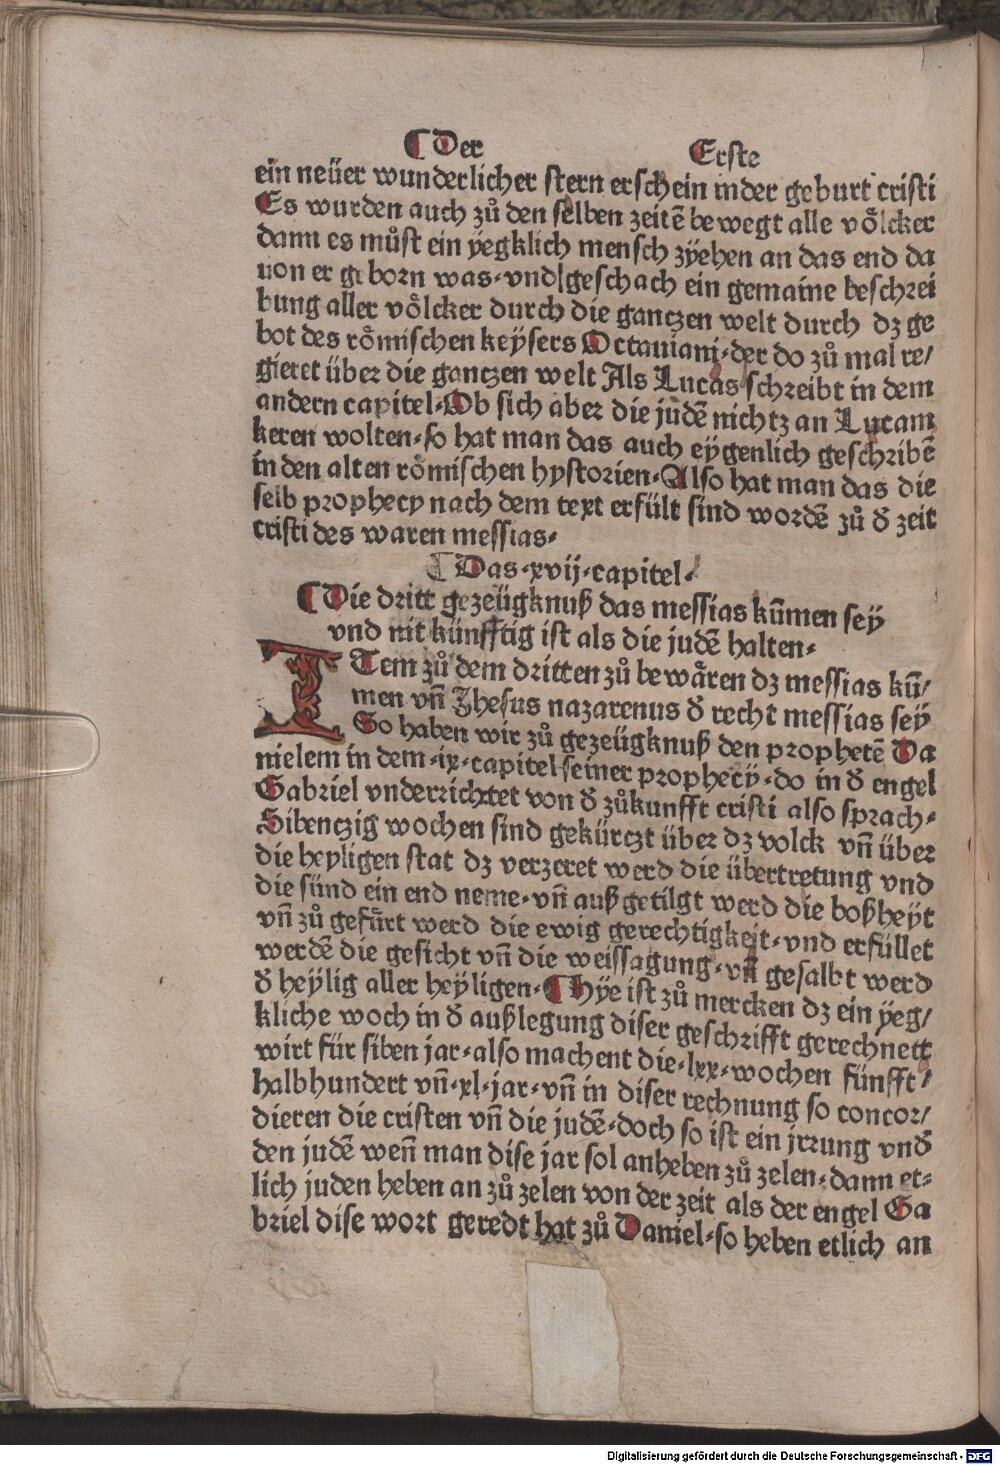 ¶ Der Erste
ein neüer wunderlicher stern erschein in der geburt cristi
Es wurden auch zů den selben zeitē bewegt alle voͤlcker
dann es můst ein yegklich mensch zÿehen an das end da
uon er geborn was· vnd geschach ein gemaine beschrei
bung aller voͤlcker durch die ganczen welt durch dz ge
bot des roͤmischen keÿsers Octauiani· der do zů mal re/
gieret über die ganczen welt Als Lucas schreibt in dem
andern capitel· Ob sich aber die judē nichtz an Lucam
keren wolten· so hat man das auch eÿgenlich geschribē
in den alten roͤmischen hystorien· Also hat man das die
selb prophecy nach dem text erfült sind wordē zů d̕ zeit
cristi des waren messias·
¶ Das ·xvij· capitel·
¶ Die dritt gezeügknuß das messias kūmen seÿ
vnd nit künfftig ist als die judē halten·
ITem zů dem dritten zů bewaͤren dz messias kū/
men vn̄ Jhesus nazarenus d̕ recht messias seÿ
So haben wir zů gezeügknuß den prophetē Da
nielem in dem ·ix· capitel seiner prophecÿ· do in d̕ engel
Gabriel vnderrichtet von d̕ zůkunfft cristi also sprach·
Sibenczig wochen sind gekürczt über dz volck vn̄ über
die heyligen stat dz verzeret werd die übertretung vnd
die sünd ein end neme· vn̄ außgetilgt werd die boßheÿt
vn̄ zů gefuͤrt werd die ewig gerechtigkeit· vnd erfüllet
werdē die gesicht vn̄ die weissagung· vn̄ gesalbt werd
d̕ heÿlig aller heÿligen· ¶ Hÿe ist zů mercken dz ein ÿeg/
kliche woch in d̕ außlegung diser geschrifft gerechnett
wirt für siben jar· also machent die ·lxx· wochen fünfft/
halbhundert vn̄ ·xl· jar· vn̄ in diser rechnung so concor/
dieren die cristen vn̄ die judē· doch so ist ein jrrung vnd̕
den judē wen̄ man dise jar sol anheben zů zelen· dann et⸗
lich juden heben an zů zelen von der zeit als der engel Ga
briel dise wort geredt hat zů Daniel· so heben etlich an
Digitalisierung gefördert durch die Deutsche Forschungsgemeinschaft - DFG